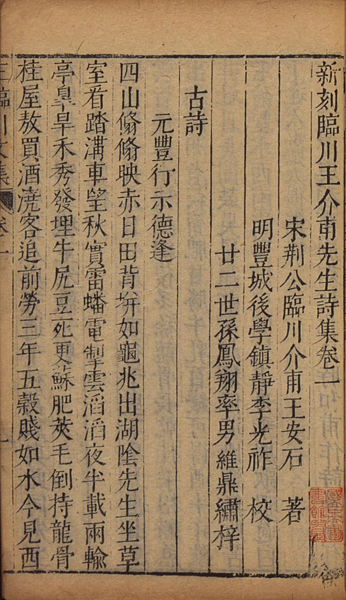 新刻臨川王介甫先生詩集卷一
宋荆公臨川介甫王安石 著
明豐城後學鎮靜李光祚 校
廿二世孫鳳翔率男維鼎繡梓
古詩
元豐行示德逢
四山翛翛映赤日田背坼如龜兆出湖陰先生坐草
室看踏溝車望秋實雷蟠電掣雲滔滔夜半載雨輸
亭臯旱禾秀發埋牛尻豆死更蘇肥莢毛倒持龍骨
桂屋敖買酒澆客追前勞三年五穀賤如水今見西
王臨川文集 卷一